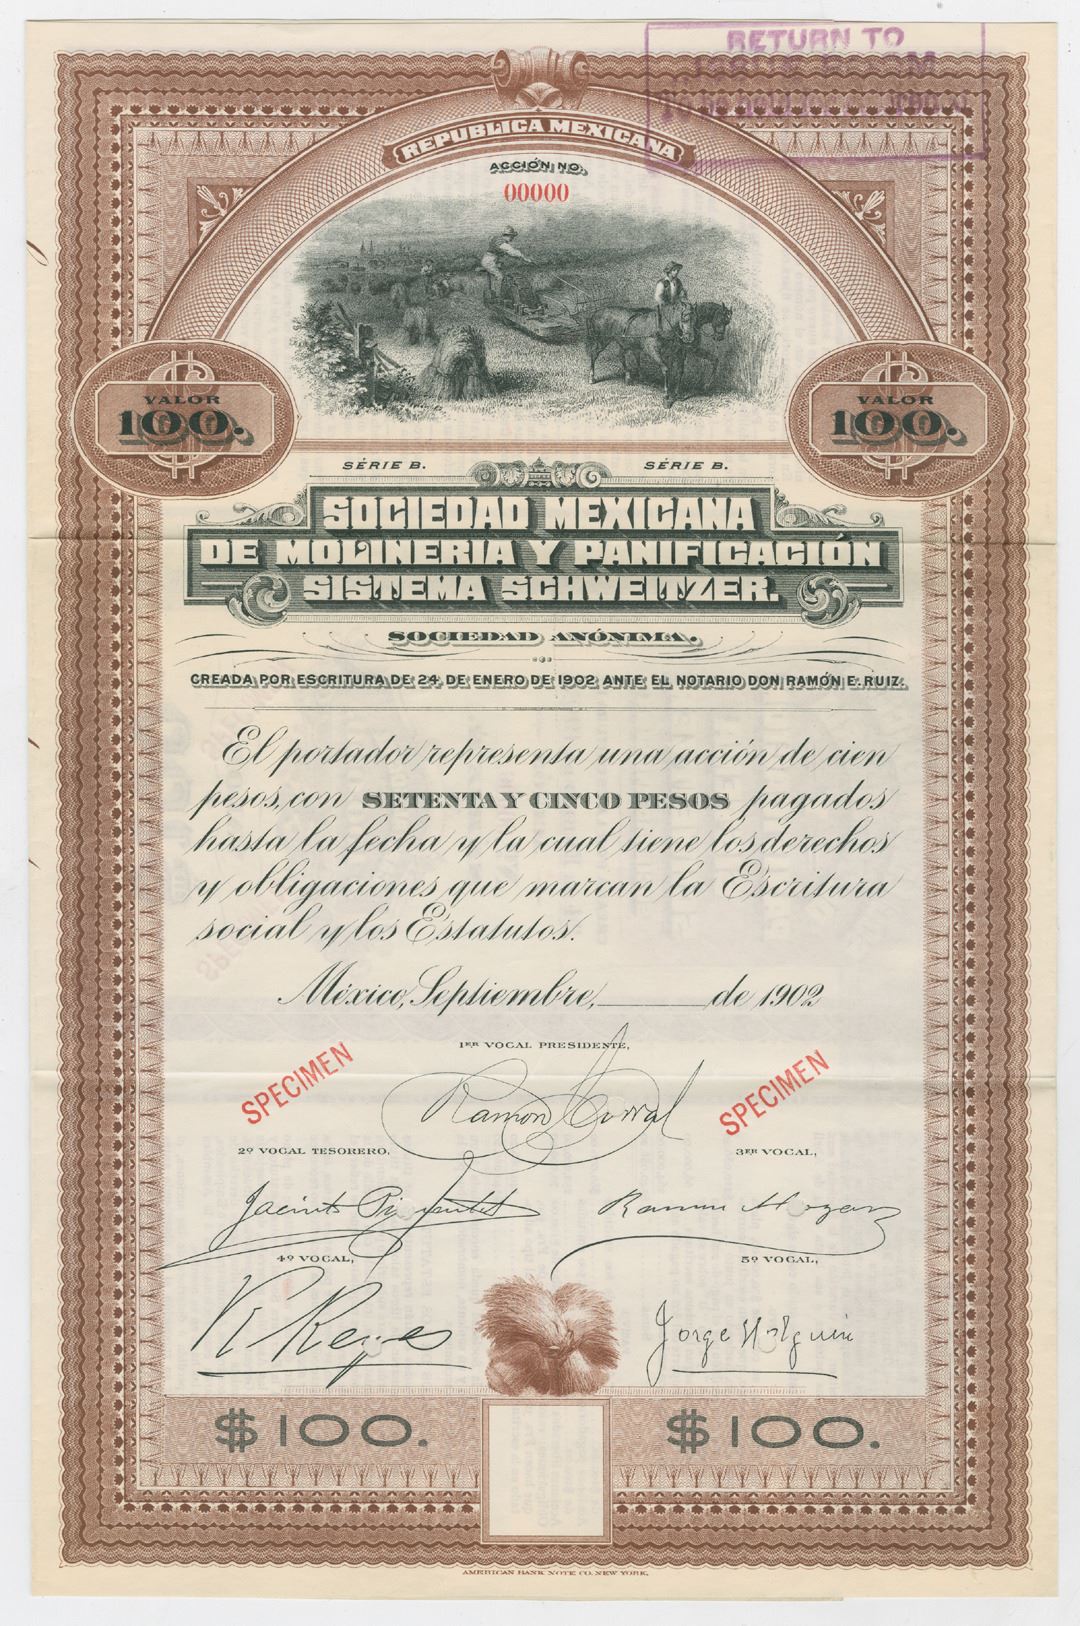 RETURN TO
REPUBLICA MEXICANA
ACCIÓN NO.
00000
VALOR
100.
VALOR
100.
SÉRIE B.
SÉRIE B.
SOCIEDAD MEXICANA
DE MOLINERIA Y PANIFICACIÓN
SISTEMA SCHWEITZER.
SOCIEDAD ANÓNIMA.
CREADA POR ESCRITURA DE 24 DE ENERO DE 1902 ANTE EL NOTARIO DON RAMÓN E. RUIZ.
El portador representa una acción de cien
pesos, con SETENTA Y CINCO PESOS pagados
hasta la fecha y la cual tiene los derechos
y obligaciones que marcan la Escritura
social y los Estatutos.
México, Septiembre, de 1902
1ER VOCAL PRESIDENTE,
SPECIMEN
Ramón Corral
SPECIMEN
2º VOCAL TESORERO,
3ER VOCAL,
Jacinto Pimentel
Ramon
4º VOCAL,
5º VOCAL,
Reyes
Jorge Holguin
$100.
$100.
AMERICAN BANK NOTE CO. NEW YORK.